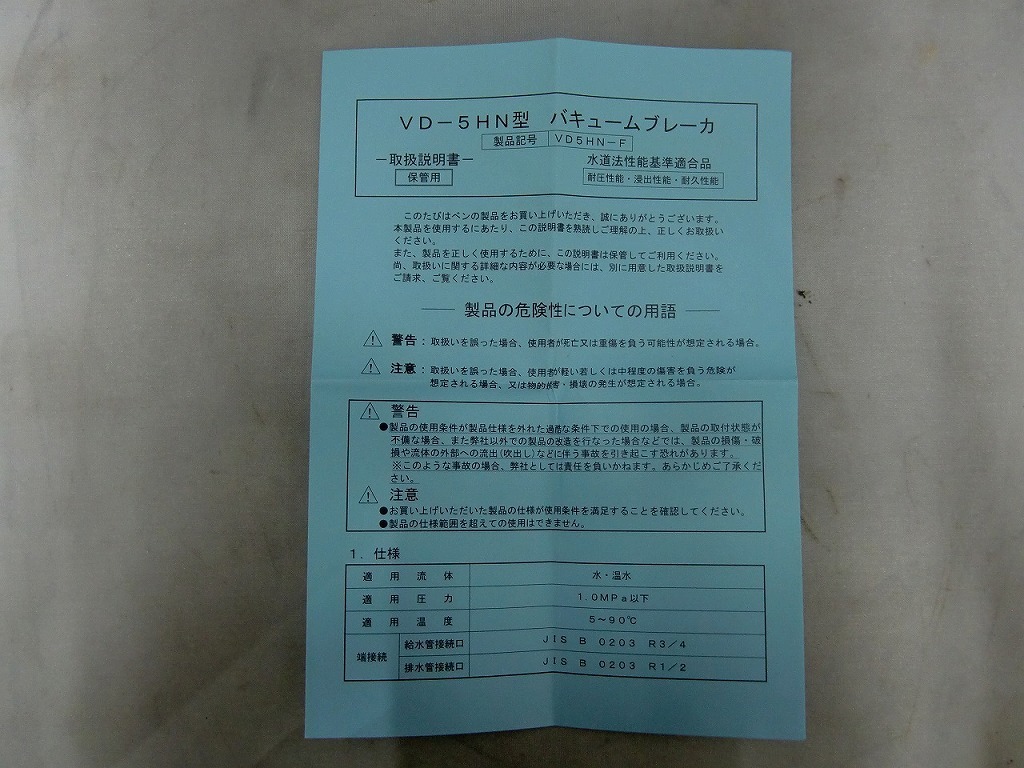 VD－5HN型　バキュームブレーカ
製品記号 VD5HN－F
－取扱説明書－
保管用
水道法性能基準適合品
耐圧性能・浸出性能・耐久性能
このたびはベンの製品をお買い上げいただき、誠にありがとうございます。
本製品を使用するにあたり、この説明書を熟読しご理解の上、正しくお取扱い
ください。
また、製品を正しく使用するために、この説明書は保管してご利用ください。
尚、取扱いに関する詳細な内容が必要な場合には、別に用意した取扱説明書を
ご請求、ご覧ください。
製品の危険性についての用語
警告：取扱いを誤った場合、使用者が死亡又は重傷を負う可能性が想定される場合。
注意：取扱いを誤った場合、使用者が軽い若しくは中程度の傷害を負う危険が
想定される場合、又は物的損害・損壊の発生が想定される場合。
警告
●製品の使用条件が製品仕様を外れた過酷な条件下での使用の場合、製品の取付状態が
不備な場合、また弊社以外での製品の改造を行なった場合などでは、製品の損傷・破
損や流体の外部への流出(吹出し)などに伴う事故を引き起こす恐れがあります。
※このような事故の場合、弊社としては責任を負いかねます。あらかじめご了承くだ
さい。
注意
●お買い上げいただいた製品の仕様が使用条件を満足することを確認してください。
●製品の仕様範囲を超えての使用はできません。
1．仕様
適用流体 水・温水
適用圧力 1.0MPa以下
適用温度 5～90℃
端接続 給水管接続口 JIS B 0203 R3／4
排水管接続口 JIS B 0203 R1／2